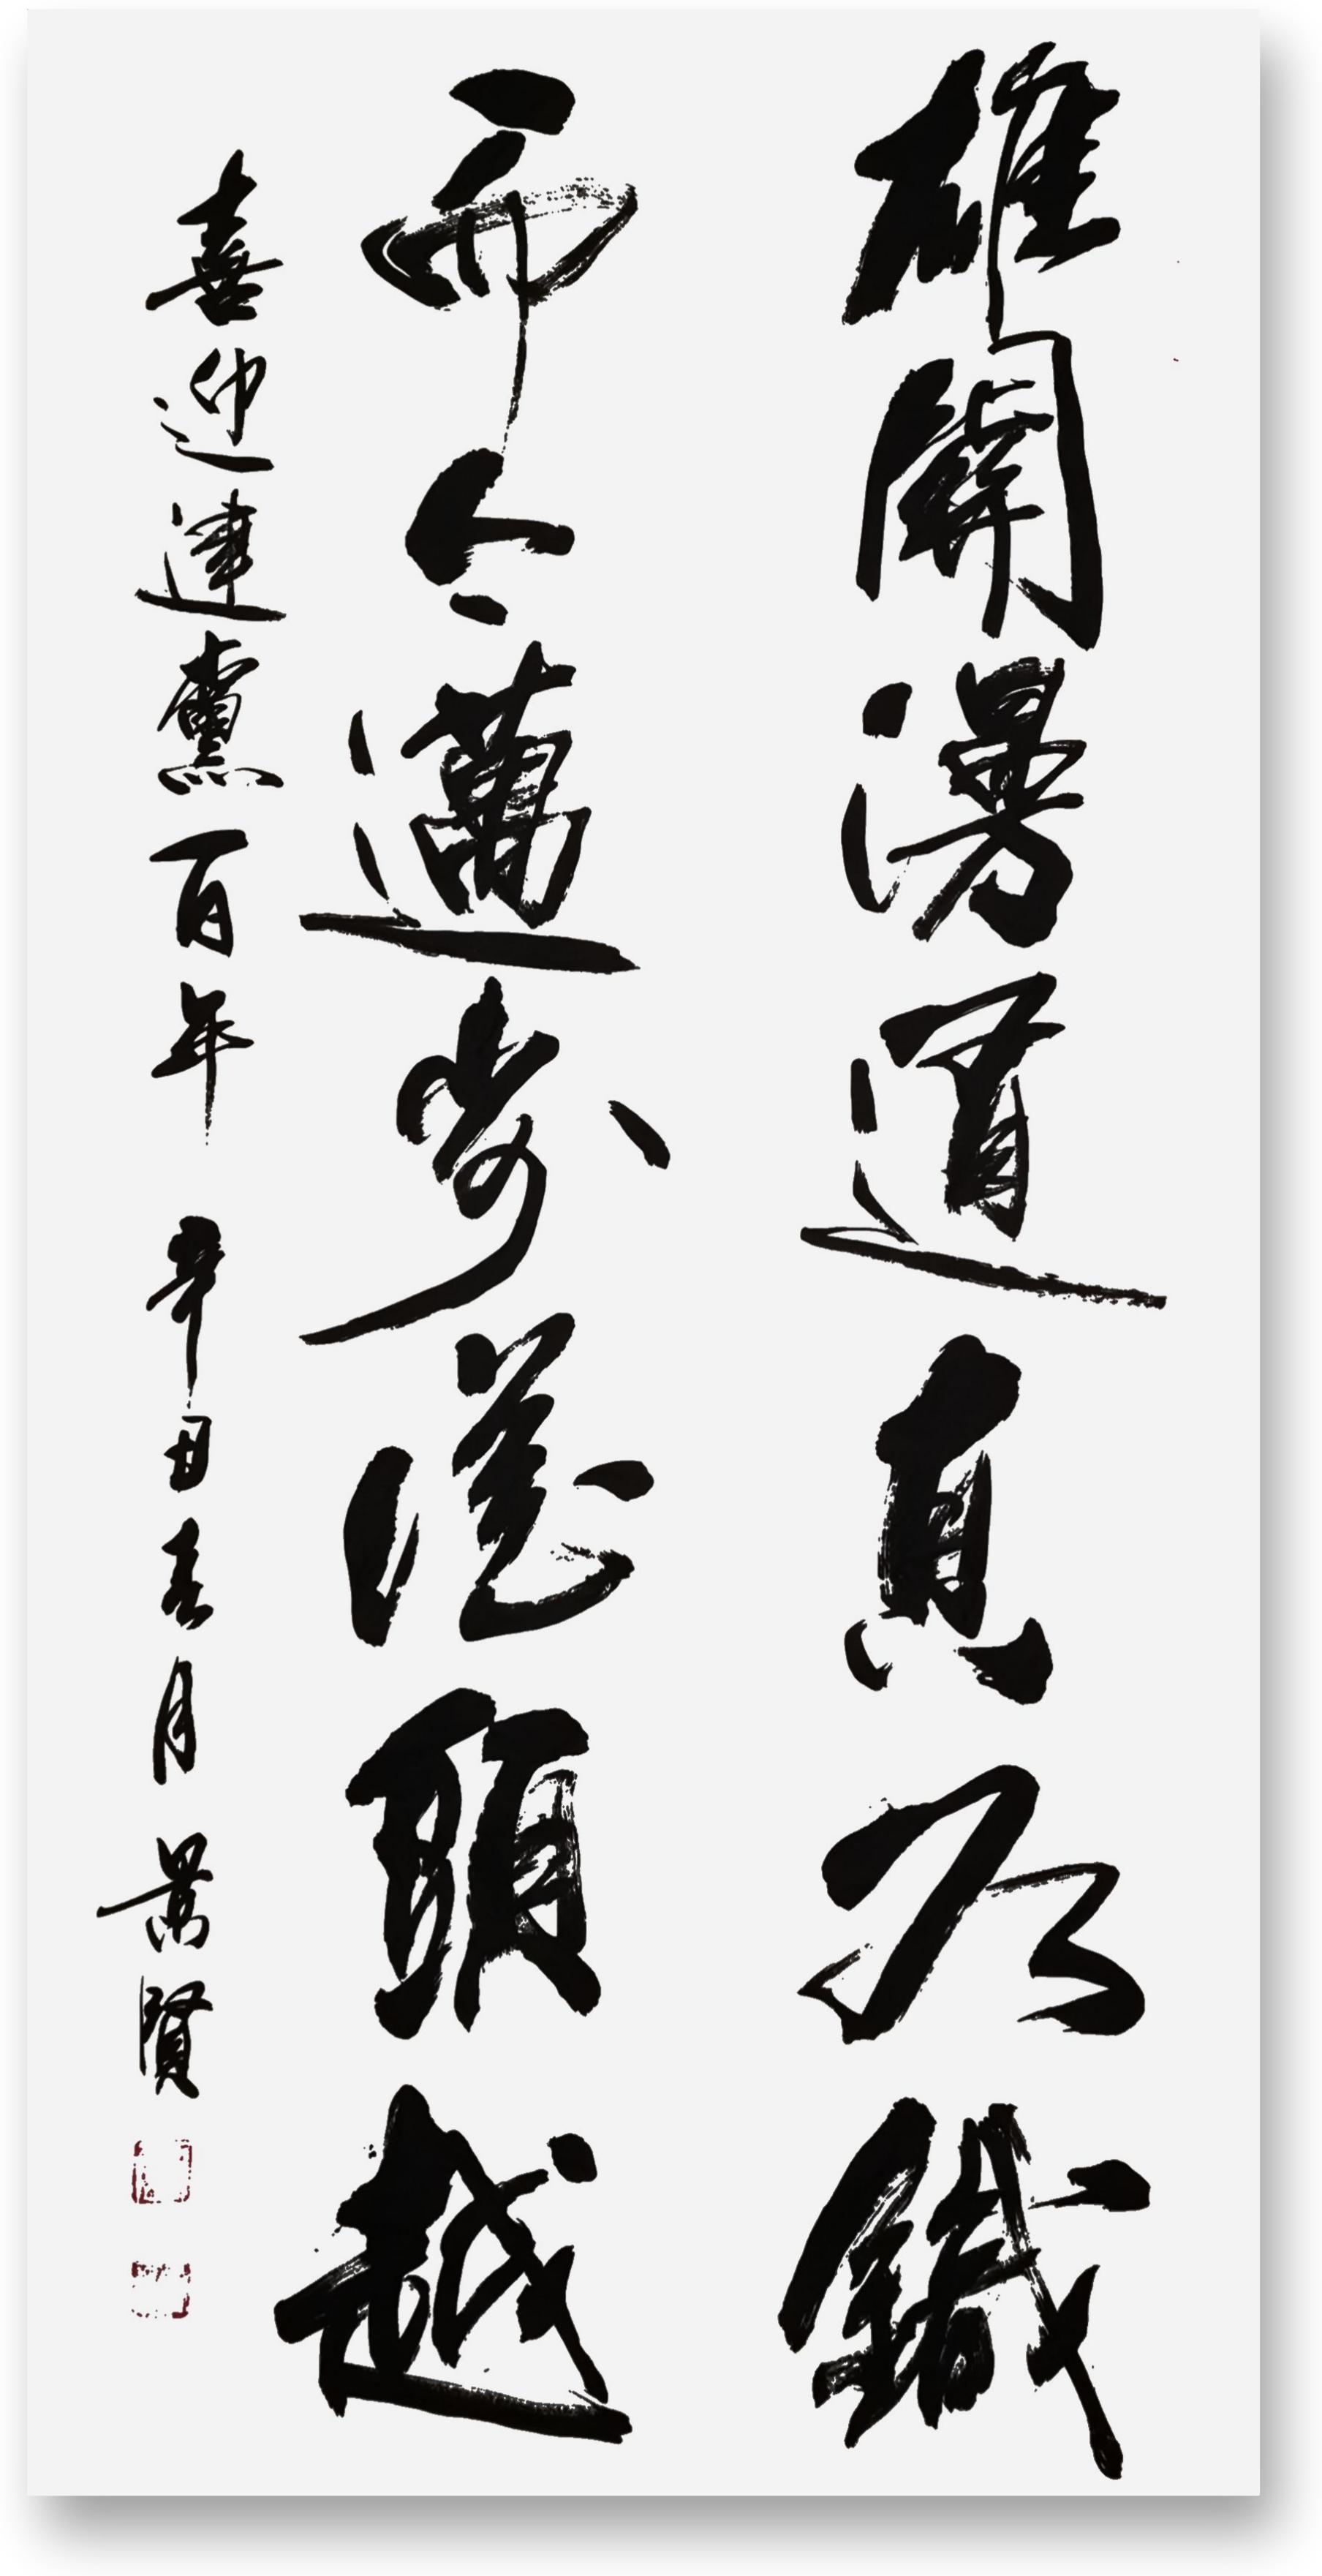 雄關漫道真如鐵
而今邁步從頭越
喜迎建黨百年 辛丑春月 景賢